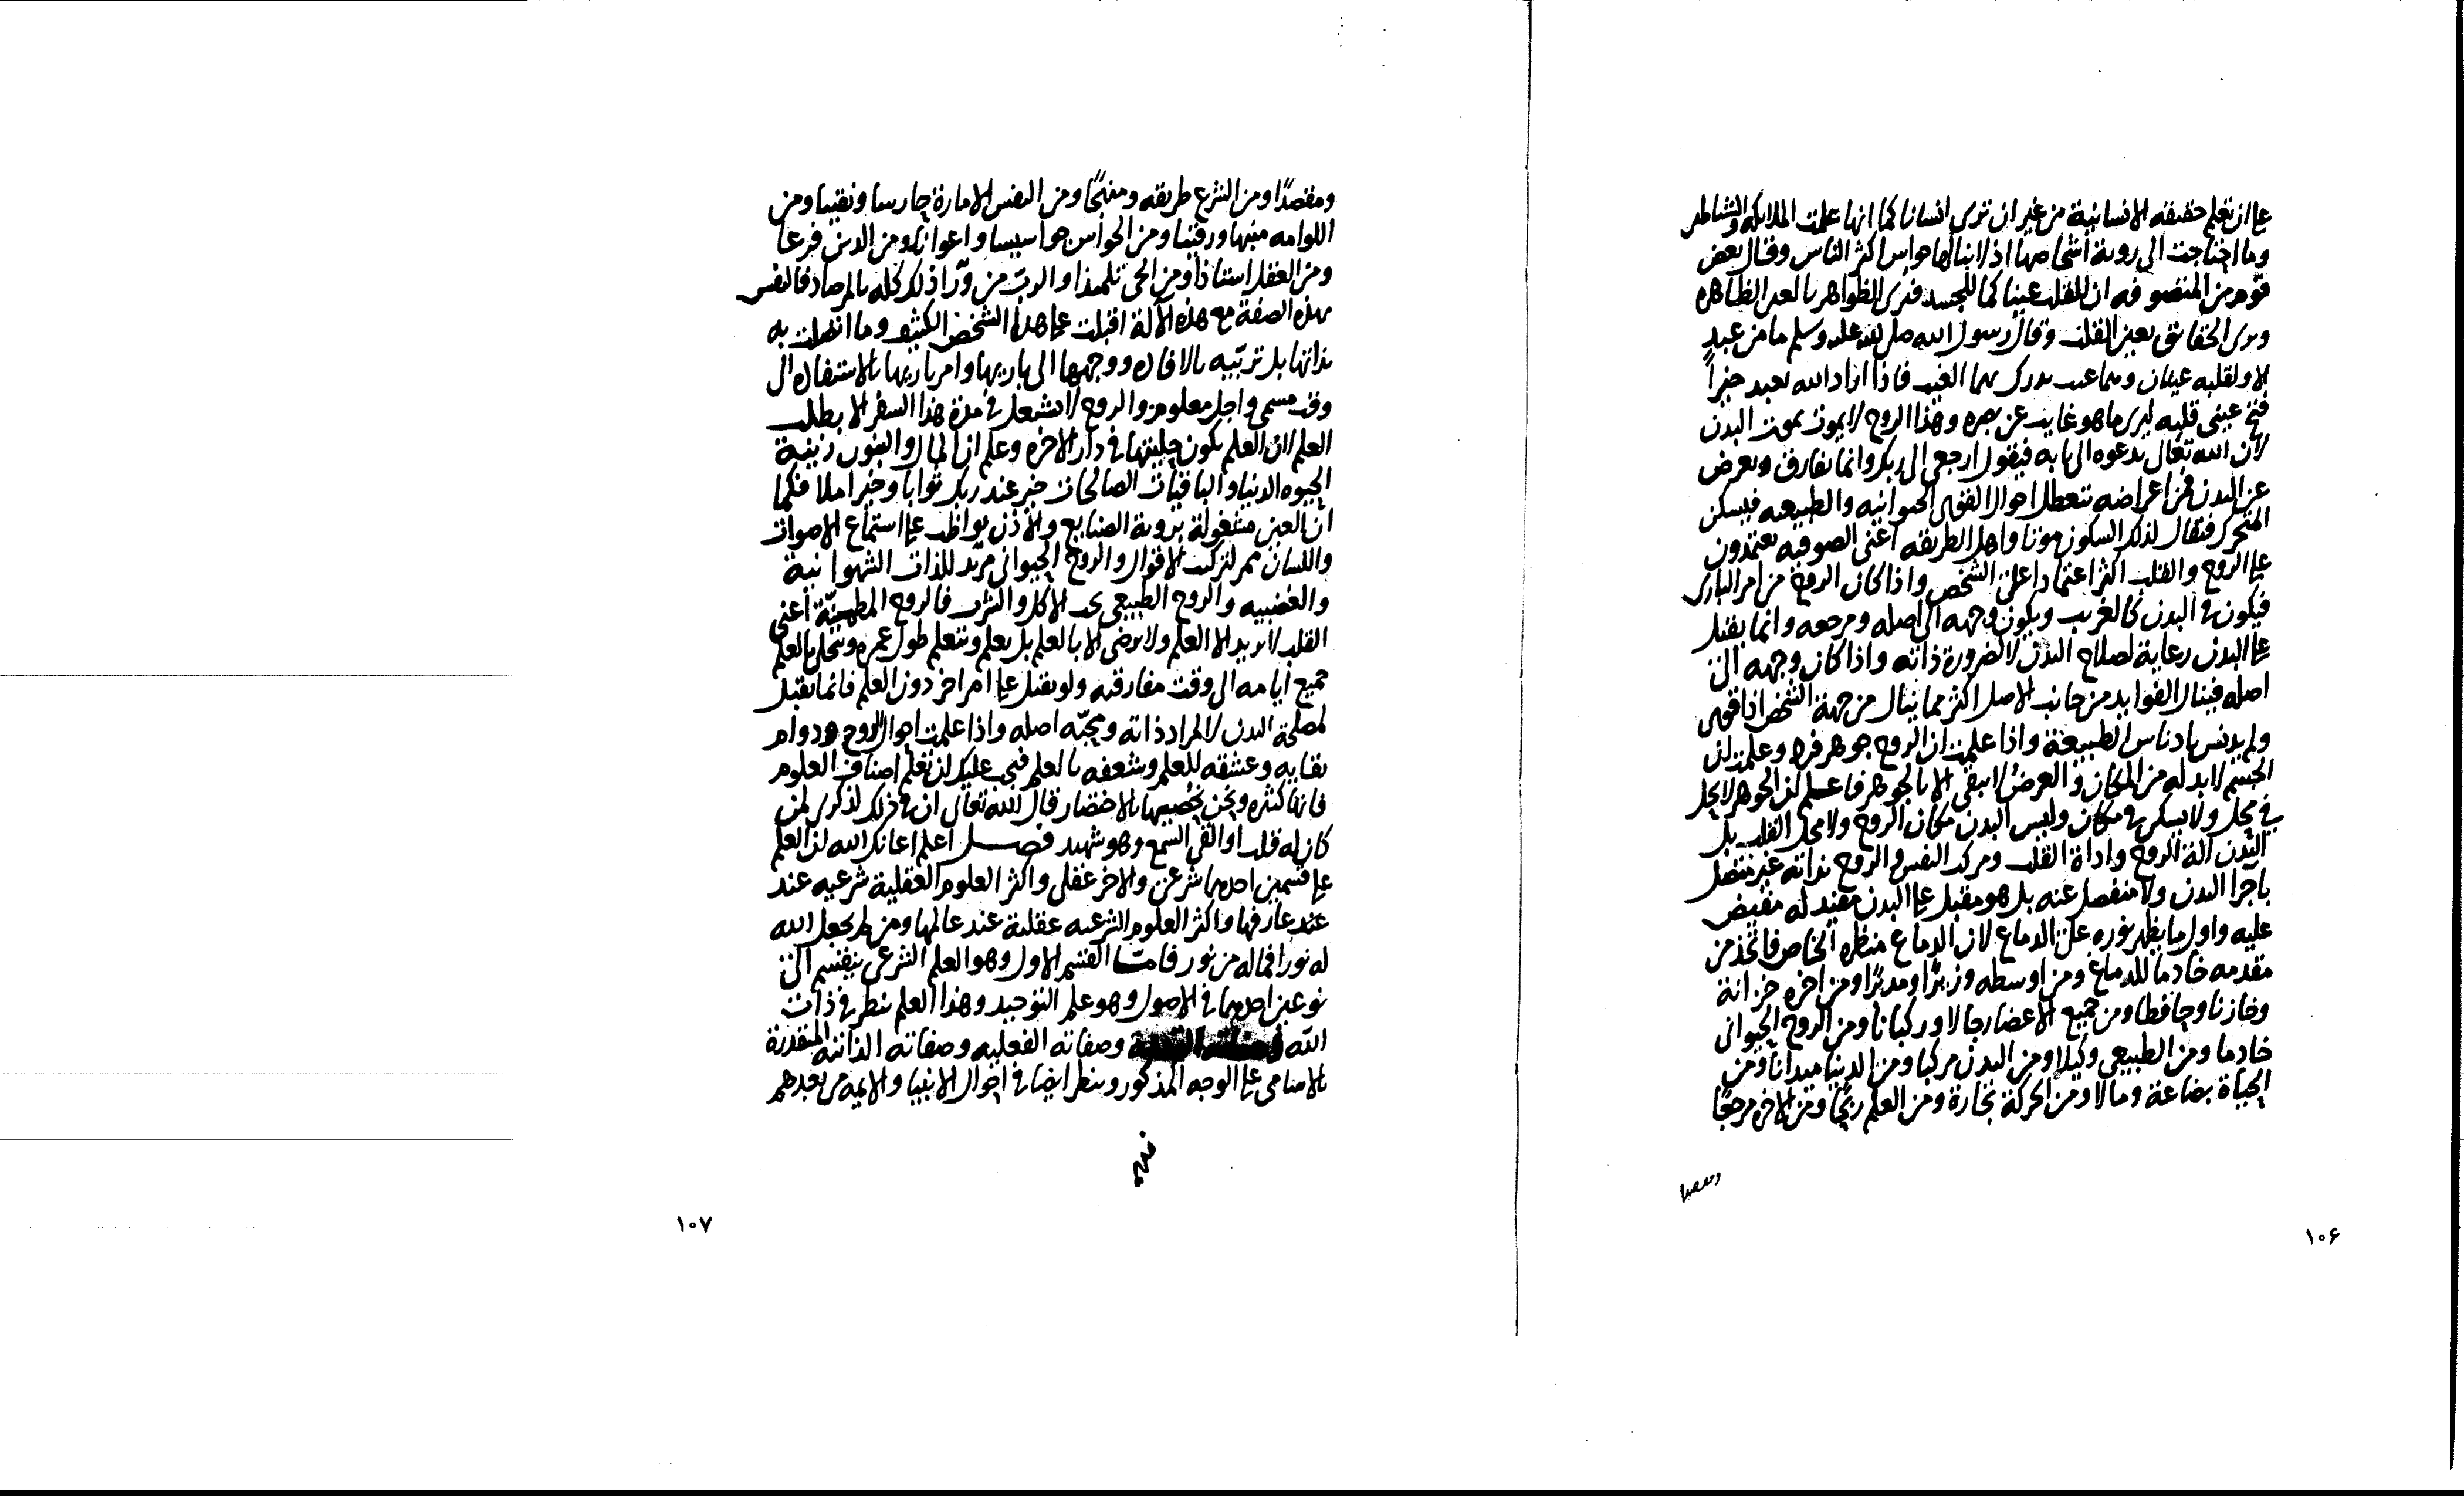 على ان تعلم حقيقه الانسانية من غير ان ترى انسانا كما انها علمت الملايكه والشياطين
وما احتاجت الى روية اشخاصها اذ لا ينالها حواس اكثر الناس وقال بعض
قوم من المتصوفه ان للقلب عينا كما للجسد فيرى الظواهر بالعين الظاهره
ويرى الحقايق بعين القلب وقال رسول الله صلى الله عليه وسلم ما من عبد
الا ولقلبه عينان وهما عين يدرك بهما الغيب فاذا اراد الله بعبد خيراً
فتح عيني قلبه ليرى ما هو غايب عن بصره وهذا الروح لا يموت بموت البدن
لان الله تعالى يدعوه الى بابه فيقول ارجعي الى ربك وانما يفارق ويعرض
عن البدن فمن اعراضه تتعطل احوال القوى الحيوانيه والطبيعيه فيسكن
المتحرك فيقال لذلك السكون موتا واهل الطريقه اعني الصوفيه يعتمدون
على الروح والقلب اكثر اعتمادا على الشخص واذا كان الروح من امر الباري
فيكون في البدن كالغريب ويكون وجهه الى اصله ومرجعه وانما يقبل
على البدن رعاية لصلاح البدن لا لضرورة ذاته واذا كان وجهه الى
اصله فينال الفوايد من جانب الاصل اكثر مما ينال من جهة الشخص اذا قوى
ولم يدنس بادناس الطبيعة واذا علمت ان الروح جوهر فرد وعلمت ان
الجسم لا بد له من المكان والعرض لا يبقى الا بالجوهر فاعلم ان الجوهر لا يحل
في محل ولا يسكن في مكان وليس البدن مكان الروح ولا محل القلب بل
البدن آلة الروح واداة القلب ومركب النفس والروح بذاته غير متصل
باجزا البدن ولا منفصل عنه بل هو مقبل على البدن مفيد له مفيض
عليه واول ما يظهر نوره على الدماغ لان الدماغ منظره الخاص فاتخذ من
مقدمه خادما للدماغ ومن اوسطه وزيرًا ومدبرًا ومن اخره خزانة
وخازنا وحافظا ومن جميع الاعضا رجالا وركبانا ومن الروح الحيواني
خادما ومن الطبيعي وكيلا ومن البدن مركبا ومن الدنيا ميدانا ومن
الحياة بضاعة ومالا ومن الحركة تجارة ومن العلم ربحًا ومن الاخره مرجعًا
ومقصدا
١٠۶
ومقصدًا ومن الشرع طريقه ومنهجًا ومن النفس الامارة حارسا ونقيبا ومن
اللوامه منبها ورفيقا ومن الحواس جواسيسا واعوانا ومن الدين درعا
ومن العقل استاذا ومن الحس تلميذا والرب من ورا ذلك كله بالمرصاد فالنفس
بهذه الصفة مع هذه الآلة اقبلت على هذا الشخص الكثيف وما اتصلت به
بذاتها بل تربيه بالافاده ووجهها الى باريها وامر باريها بالاستفاده الى
وقت مسمى واجل معلوم والروح لا تشتغل في مدة هذا السفر الا بطلب
العلم لان العلم يكون حليتها في دار الاخره وعلم ان المال والبنون زينة
الحيوه الدنيا والباقيات الصالحات خير عند ربك ثوابا وخير املا فكما
ان العين مشغولة بروية الصنايع والاذن تواظب على استماع الاصوات
واللسان لتركيب الاقوال والروح الحيواني مريد اللذات الشهوانية
والغضبيه والروح الطبيعي يحب الاكل والشرب فالروح المطمئنة اعني
القلب لا يريد الا العلم ولا يرضى الا بالعلم بل يعلم ويتعلم طول عمره ويتحلى بالعلم
جميع ايامه الى وقت مفارقته ولو يقبل على امر اخر دون العلم فانما يقبل
لمصلحة البدن لا لمراد ذاته ومحبّه اصله واذا علمت احوال الروح ودوام
بقايه وعشقه للعلم وشعفه بالعلم فيجب عليك ان تعلم اصناف العلوم
فانها كثيره ونحن نحصيها بالاختصار قال الله تعالى ان في ذلك لذكرى لمن
كان له قلب او القى السمع وهو شهيد فصل اعلم اعانك الله ان العلم
على قسمين احدهما شرعي والاخر عقلي واكثر العلوم العقلية شرعيه عند
عند عارفها واكثر العلوم الشرعيه عقلية عند عالمها ومن لم يجعل الله
له نورا فما له من نور فامّا القسم الاول وهو العلم الشرعي ينقسم الى
نوعين احدهما في الاصول وهو علم التوحيد وهذا العلم ينظر في ذات
الله وصفاته الفعليه وصفاته الذاتيه المتقدرة
بالاسامي على الوجه المذكور وينظر ايضا في احوال الانبيا والايمه من بعدهم
١٠٧